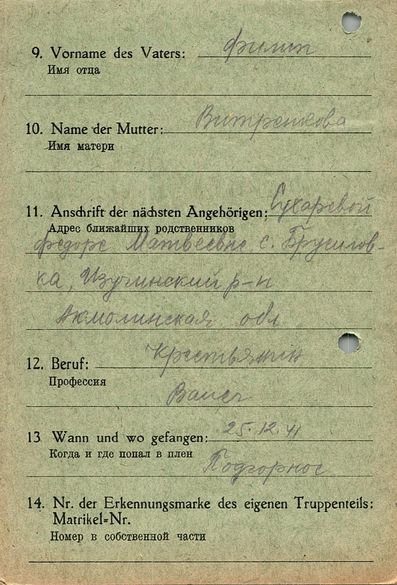 9. Vorname des Vaters: Филип
Имя отца
10. Name der Mutter: Витренкова
Имя матери
11. Anschrift der nächsten Angehörigen: Сухаревой
Адрес ближайших родственников
Федоре Матвеевне с. Брусилов-
ка, р-н
Акмолинская обл
12. Beruf: Крестьянин
Профессия
13 Wann und wo gefangen: 25.12.41
Когда и где попал в плен
Подгорное
14. Nr. der Erkennungsmarke des eigenen Truppenteils:
Matrikel=Nr.
Номер в собственной части